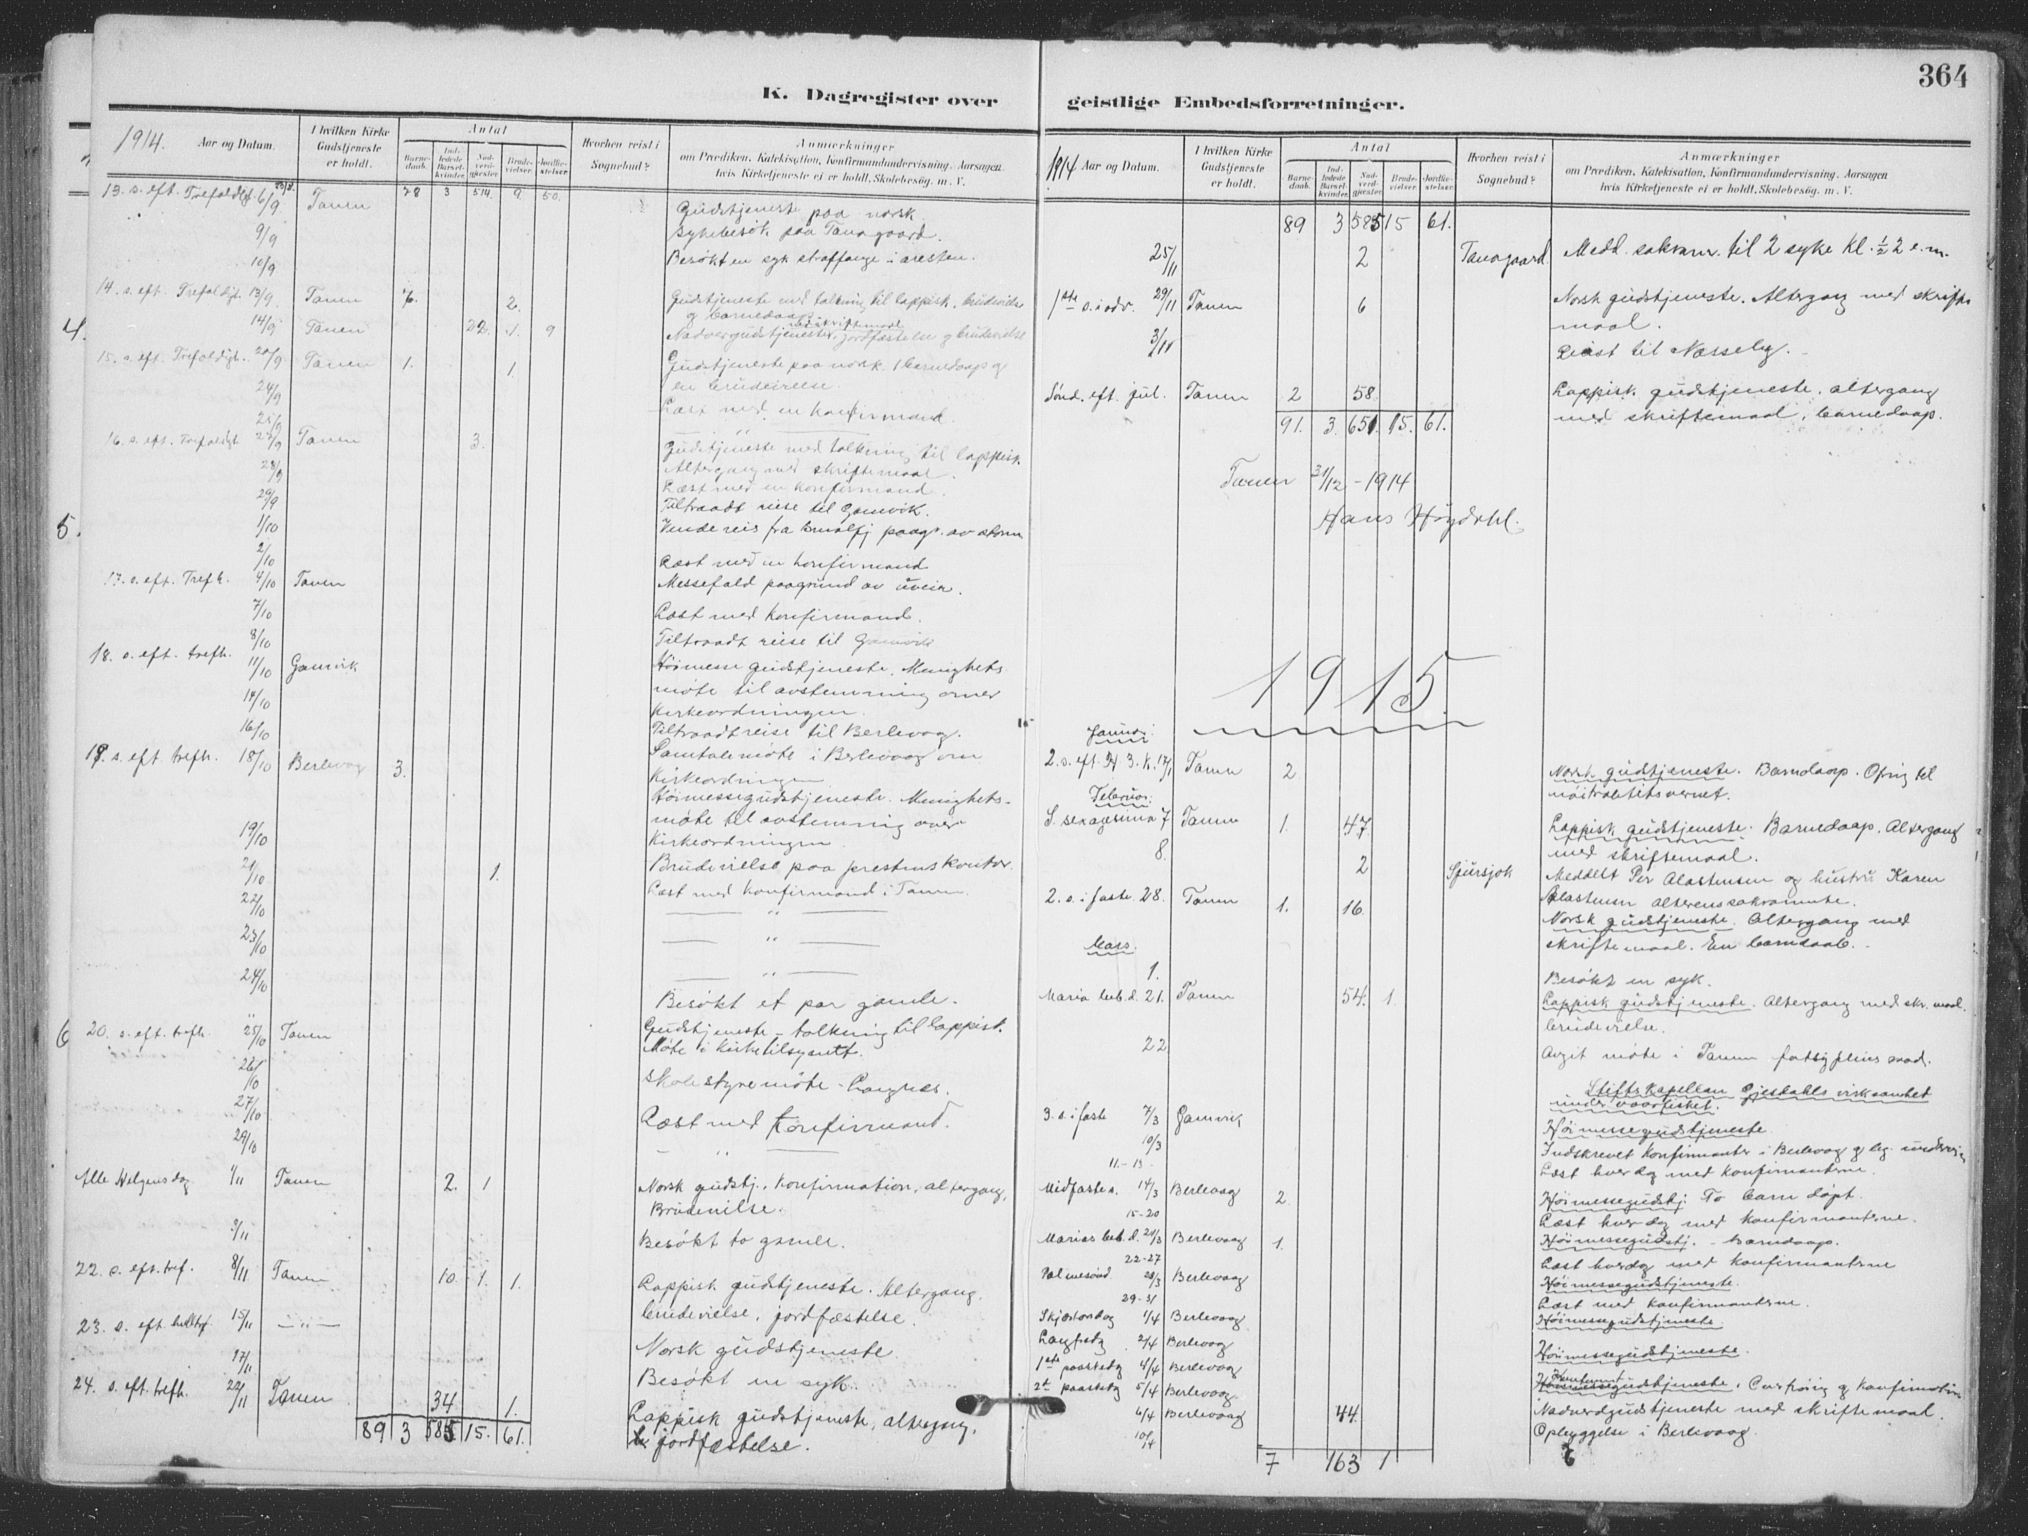 364
K. Dagregister over
1914. Aar og Datum.
I hvilken Kirke Gudstjeneste er holdt.
Antal
Barnedaab.
Indledede Barselkvinder.
Nadverdgjester.
Brudevielser.
Jordfæstelser.
Hvorhen reist i Sognebud?
Anmærkninger
om Prædiken, Katekisation, Konfirmandundervisning, Aarsagen
hvis Kirketjeneste ei er holdt, Skolebesøg, m. V.
78 3 514. 9. 50.
13. s. eft. Trefoldigh. 6/9 Tanen Gudstjeneste paa norsk
9/9 Sykebesøk paa Tanagaard.
10/9 Besøkt en syk straffange i aresten.
14. s. eft. Trefoldigt. 13/9. Tanen 7. 2. Gudstjeneste med tolkning til lappisk, brudevielse
og barnedaap
14/9 Tanen 22. 1. 9 Nadverdgudstjeneste m. skriftemaal, jordfæstelse og brudevielse
15. s. eft. Trefoldigt. 20/9 Tanen 1. 1. Gudstjeneste paa norsk. 1 barnedaap og
en brudevielse.
24/9 Læst med en konfirmand
25/9 — " —
16. s. eft. Trefoldigt 27/9 Tanen 3. Gudstjeneste med tolkning til lappisk.
Altergang med skriftemaal.
28/9 Læst med en konfirmand.
29/9 Tiltraadt reise til Gamvik.
1/10 Vendereis fra paagr. av storm
2/10 Læst med en konfirmand
17. s. eft. Trefh. 4/10 Tanen Messefald paagrund av uveir.
7/10 Læst med konfirmand.
8/10 Tiltraadt reise til Gamvik
18. s. eft. trefh. 11/10 Gamvik Høimesse gudstjeneste. Menighets
møte til avstemning over
kirkeordningen.
14/10
16/10 Tiltraadt reise til Berlevaag.
Samtalemøte i Berlevaag om
kirkeordningen
19. s. eft trefh. 18/10 Berlevag 3. Høimessegudstjeneste. Menighets-
møte til avstemning over
kirkeordningen.
19/10
21/10 1. Brudevielse paa prestens kontor.
Læst med konfirmand i Tanen.
22/10 — " —
23/10 — " —
24/10 — " —
Besøkt et par gamle.
20. s. eft. trefh. 25/10 Tanen Gudstjeneste - tolkning til lappisk.
Møte i kirketilsynet.
26/10 Skolestyremøte - Langnes.
27/10 Læst med konfirmand.
29/10 — " —
Alle Helgensdag 1/11 Tanen 2. 1 Norsk gudstj., konfirmation, altergang,
Brudevielse.
3/11 Besøkt to gamle.
22. s. eft. tref. 8/11 Tanen 10. 1. 1. Lappisk gudstjeneste. Altergang,
brudevielse, jordfæstelse.
23. s. eft. 15/11 — " — Norsk gudstjeneste
17/11 Besøkt en syk.
24. s. eft. trefh. 22/11 Tanen 34 1. Lappisk gudstjeneste, altergang,
jordfæstelse.
89 3 585 15. 61.
4.
5.
6
geistlige Embedsforretninger.
1914 Aar og Datum.
I hvilken Kirke Gudstjeneste er holdt.
Antal
Barnedaab.
Indledede Barselkvinder.
Nadverdgjester.
Brudevielser.
Jordfæstelser.
Hvorhen reist i Sognebud?
Anmærkninger
om Prædiken, Katekisation, Konfirmandundervisning, Aarsagen
hvis Kirketjeneste ei er holdt, Skolebesøg, m. V.
89 3 585 15 61.
25/11 2 Tanagaard. Medd. sakram. til 2 syke Kl. ½ 2 e. m.
1ste s. i adv. 29/11 Tanen 6 Norsk gudstjeneste. Altergang med skrifte
maal.
3/11 Reist til Næsseby.
Sønd. eft. jul. Tanen 2 58. Lappisk gudstjeneste, altergang
med skriftemaal, barnedaap.
91. 3. 651. 15. 61.
Tanen 31/12 - 1914
Hans Høydahl.
1915
Januar.
2. s. eft. H. 3. K. 17/1 Tanen 2 Norsk gudstjeneste. Barnedaap. Ofring til
nøitralitetsvernet.
Februar.
S. sexagesima 7 Tanen 1. 47. Lappisk gudstjeneste. Barnedaap. Altergang
med skriftemaal.
8. 2 Sjursjok Meddelt Per Alastensen og hustru Karen
Alastensen alterens sakramente.
2. s. i faste. 28. Tanen 1. 16. Norsk gudstjeneste. Altergang med
skriftemaal. En barnedaab.
Mars.
1. Besøkt en syk.
Maria beb. d. 21. Tanen 54. 1. Lappisk gudstjeneste. Altergang med skr. maal.
brudevielse.
22 møte i Tanen
Stiftskapellan Gjesdahls virksomhet
under vaarfisket.
3. s. i faste 7/3 Gamvik Høimessegudstjeneste
10/3 Indskrevet konfirmanter i Berlevaag og beg. undervisn
11.-13 Læst hver dag med konfirmanterne.
Midfastes. 14/3 Berlevaag 2. Høimessegudstj. To barn døpt.
15-20 Læst hver dag med konfirmanterne.
Marias beb. d. 21/3 Berlevaag 1. Høimessegudstj. - barnedaap.
22-27 Læst hverdag med konfirmanterne
Palmesønd 28/3 Berlevaag Høimessegudstjeneste.
29-31 Læst med konfirmanterne.
Skjærtorsdag 1/4 Berlevaag Høimessegudstjeneste.
Langfredg 2/4 Berlevaag Høimessegudstjeneste.
1ste paaskedag 4/4 Berlevaag
2. paaskedg 5/4 Berlevaag gudstjeneste, & konfirmation
6/4 Berlevaag 44. Nadverdgudstjeneste med skriftemaal.
10/4 Opbyggelse i Berlevaag.
7 163 1
6